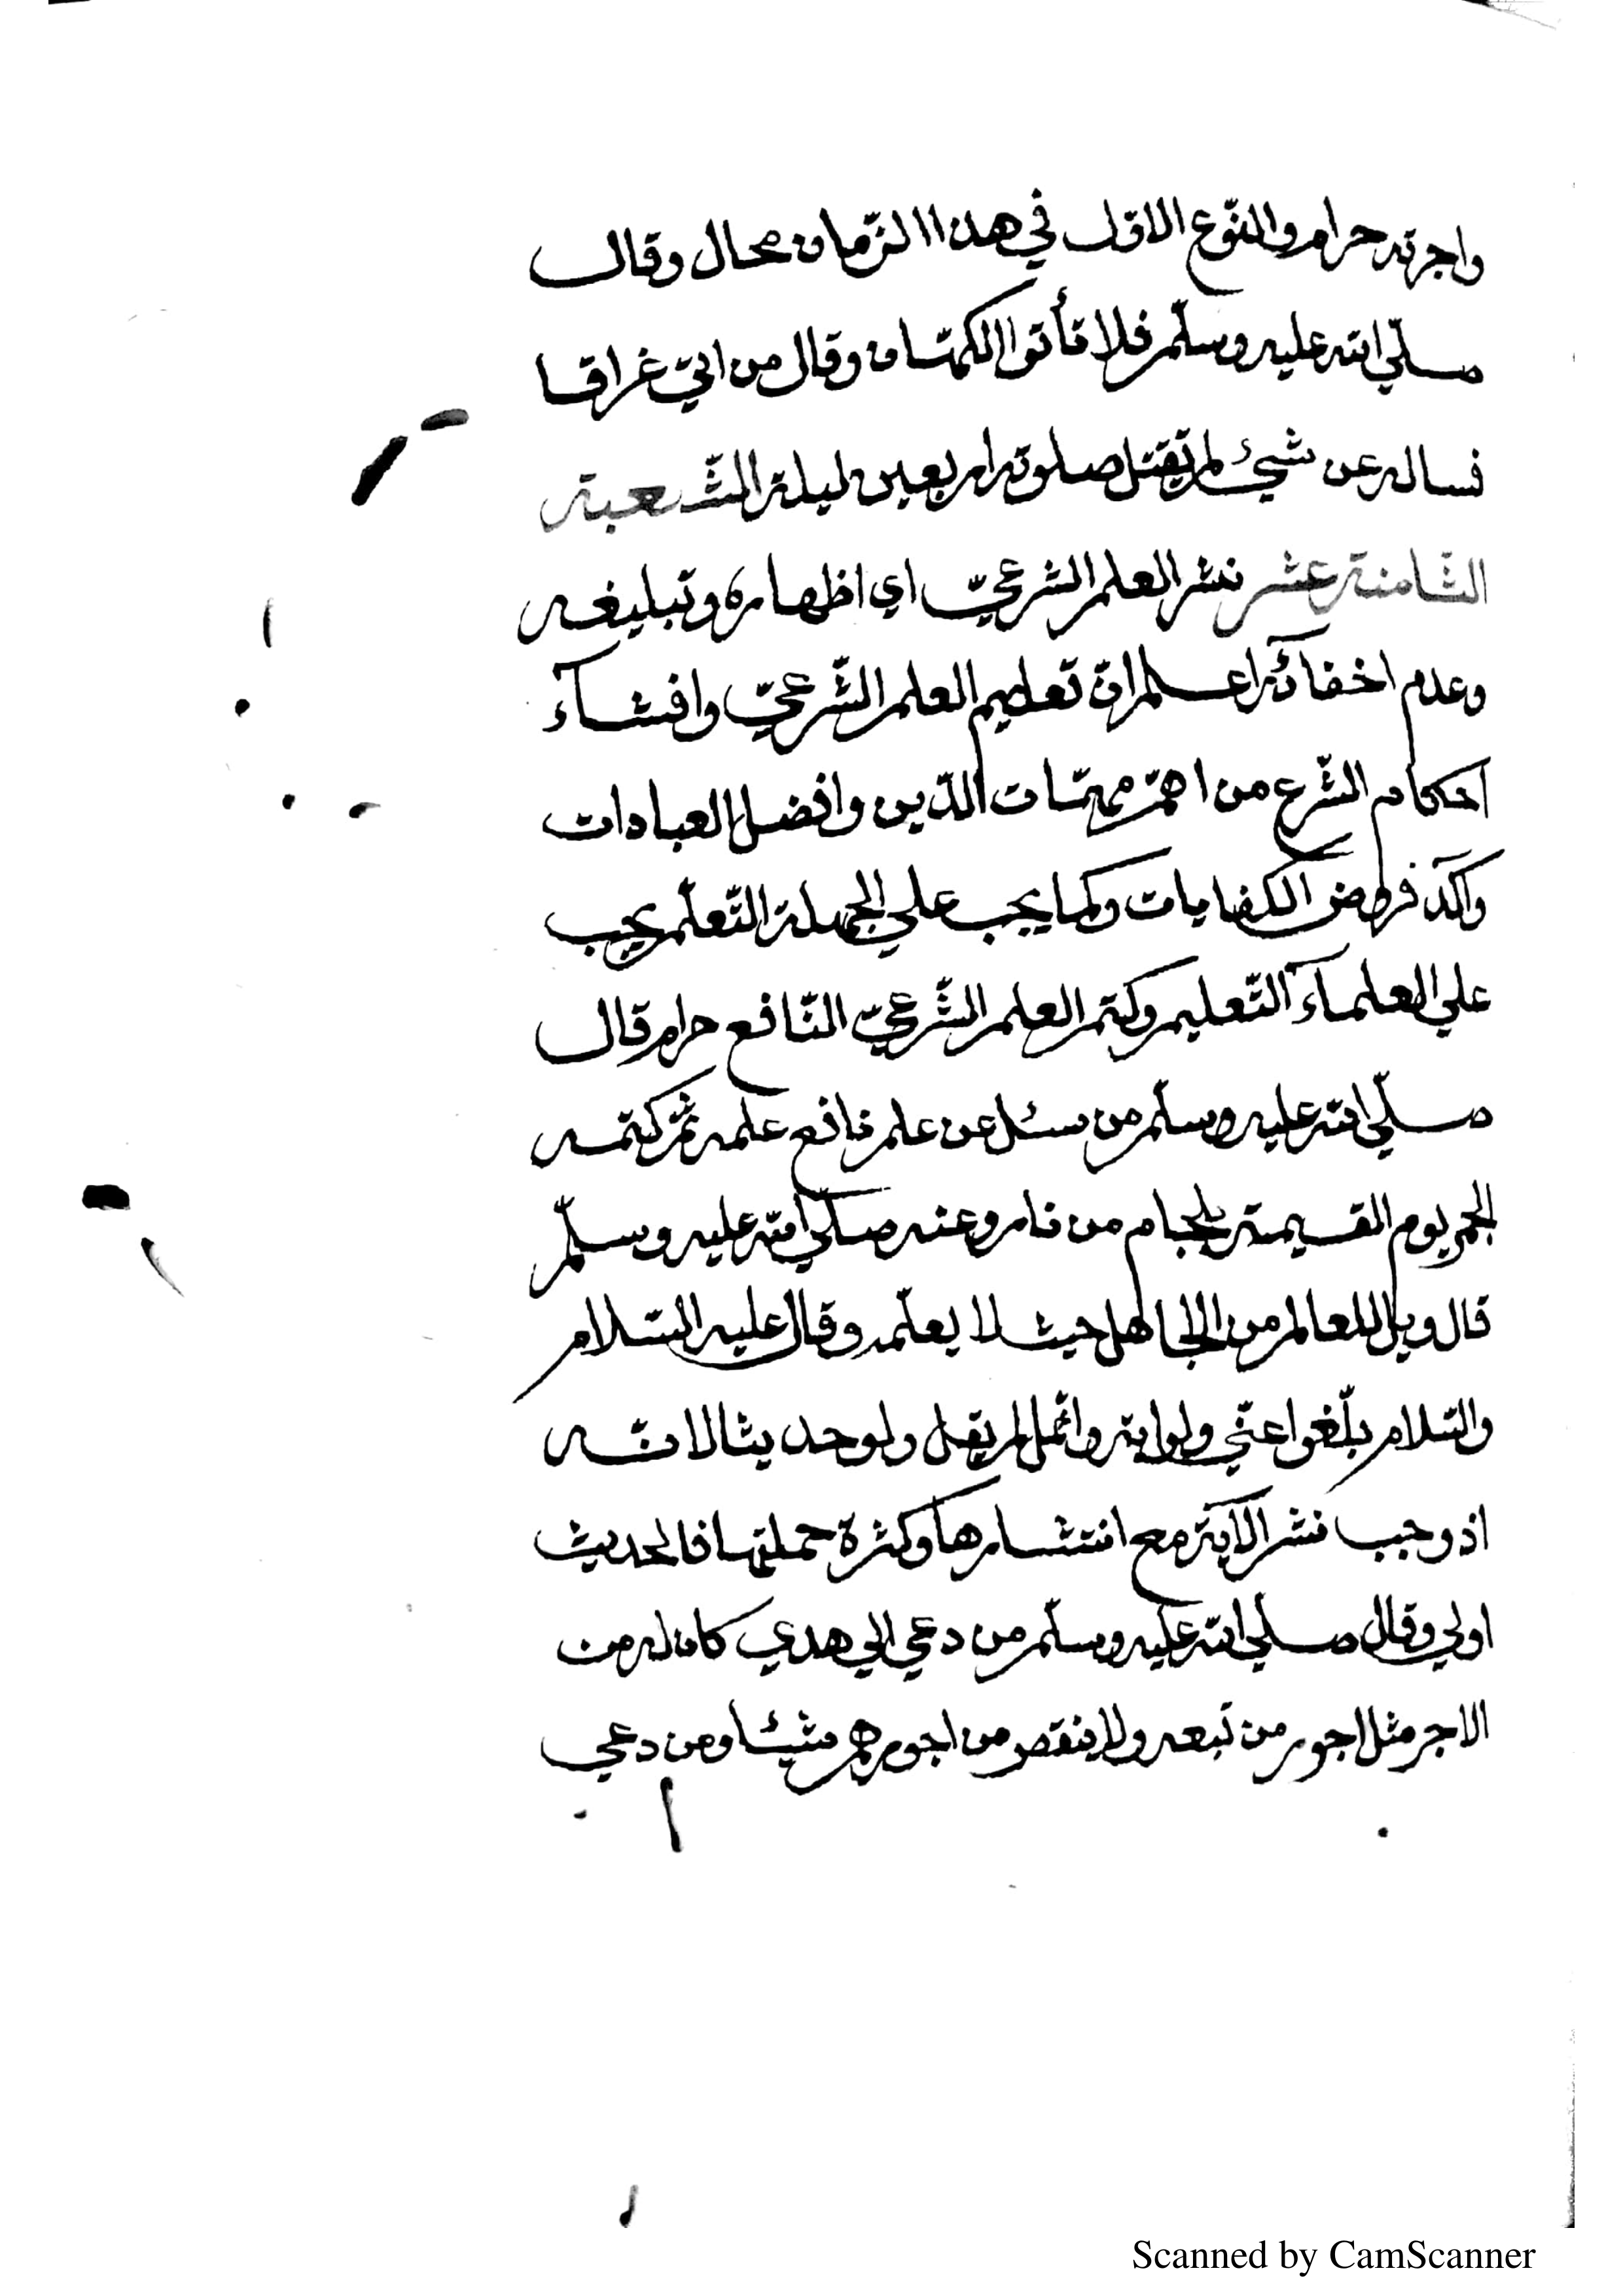 واجرته حرام والنّوع الاوّل في هذا الزّمان محال وقال
صلّي الله عليه وسلّم فلا تأتوا الكهّان وقال من اتيّ عرّافا
فساله عن شيئ لم تقبل صلوته اربعين ليلة الشّعبة
الثّامنة عشر نشر العلم الشرعيّ اي اظهاره وتبليغه
وعدم اخفائه اعلم انّ تعليم العلم الشّرعيّ وافشآء
احكام الشّرع من اهمّ مهمّات الدّين وافضل العبادات
واكد فروض الكفايات وكما يجب علي الجهلة التّعلّم يجب
علي العلمآء التّعليم وكتم العلم الشّرعيّ النّافع حرام قال
صلّي الله عليه وسلّم من سئل عن علم نافع علمه ثمّ كتمه
الجم يوم القيمة بلجام من نار وعنه صلّي الله عليه وسلّم
قال ويل للعالم من الجاهل حيث لا يعلّمه وقال عليه السّلام
والسّلام بلّغوا عنّي ولو اية وانّما لم يقل ولو حديثا لانّه
اذ وجب نشر الاية مع انتشارها وكثرة حملتها فالحديث
اولي وقال صلّي الله عليه وسلّم من دعي الي هدي كان له من
الاجر مثل اجور من تبعه ولا ينقص من اجورهم شيئا ومن دعي
Scanned by CamScanner